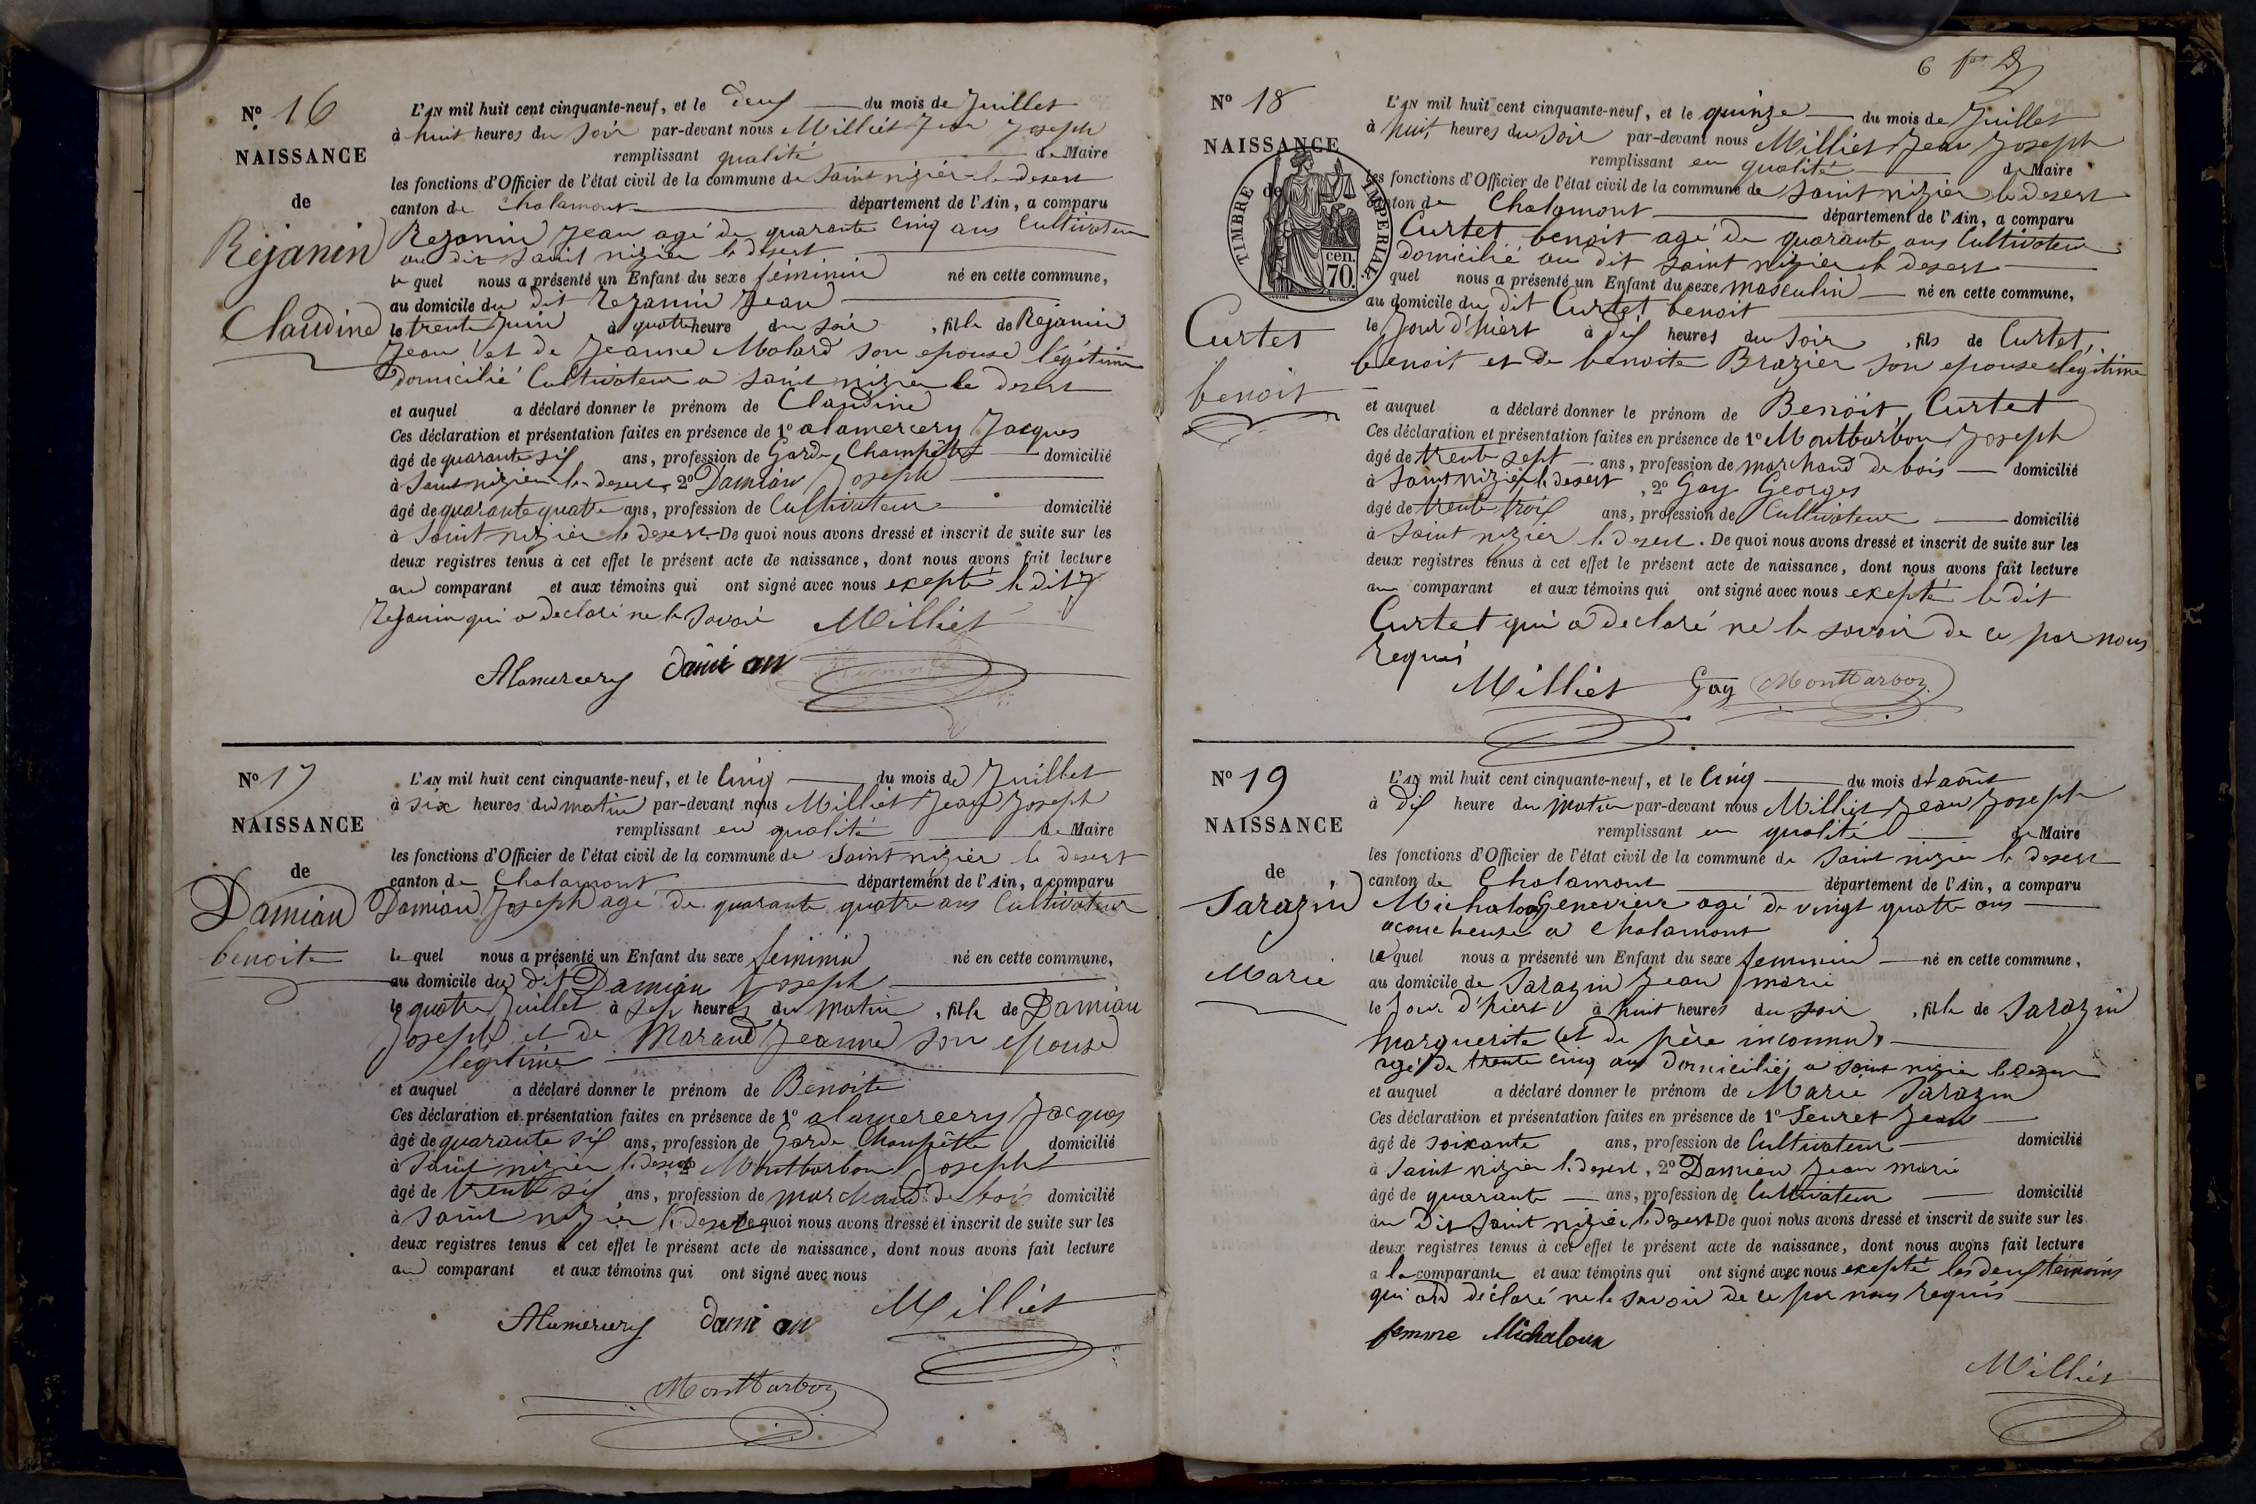 N° 16
NAISSANCE
de
Rejanin
Claudine
L'AN mil huit cent cinquante-neuf, et le deux du mois de Juillet
à huit heures du soir par-devant nous Milliet Jean Joseph
remplissant qualité de Maire
les fonctions d'Officier de l'état civil de la commune de Saint nizier le desert
canton de Chalamont département de l'Ain, a comparu
Rejanin Jean agé de quarante cinq ans Cultivateur
au dit Saint nizier le desert
le quel nous a présenté un Enfant du sexe féminin né en cette commune,
au domicile du dit Rejanin Jean
le trente Juin à quatre heure du soir, fille de Rejanin
Jean et de Jeanne Molard son epouse légitime
domicilié Cultivateur a saint nizier le desert
et auquel a déclaré donner le prénom de Claudine
Ces déclaration et présentation faites en présence de 1° alamercery Jacques
âgé de quarante six ans, profession de Garde Champêtre domicilié
à Saint nizier le desert, 2° Damian Joseph
âgé de quarante quatre ans, profession de Cultivateur domicilié
à Saint nizier le desert. De quoi nous avons dressé et inscrit de suite sur les
deux registres tenus à cet effet le présent acte de naissance, dont nous avons fait lecture
au comparant et aux témoins qui ont signé avec nous exepté le dit
Rejanin qui a declaré ne le savoir Milliet
Alamercery dami an
N° 17
NAISSANCE
de
Damian
benoite
L'AN mil huit cent cinquante-neuf, et le Cinq du mois de Juillet
à six heures du matin par-devant nous Milliet Jean Joseph
remplissant en qualité de Maire
les fonctions d'Officier de l'état civil de la commune de Saint nizier le desert
canton de Chalamont département de l'Ain, a comparu
Damian Joseph agé de quarante quatre ans Cultivateur
le quel nous a présenté un Enfant du sexe féminin né en cette commune,
au domicile du dit Damian Joseph
le quatre Juillet à sept heures du matin, fille de Damian
Joseph et de Marand Jeanne son epouse
légitime
et auquel a déclaré donner le prénom de Benoite
Ces déclaration et présentation faites en présence de 1° alamercery Jacques
âgé de quarante six ans, profession de Garde Champêtre domicilié
à Saint nizier le desert 2° Montbarbon Joseph
âgé de trente six ans, profession de marchand de bois domicilié
à Saint nizier le desert De quoi nous avons dressé et inscrit de suite sur les
deux registres tenus à cet effet le présent acte de naissance, dont nous avons fait lecture
au comparant et aux témoins qui ont signé avec nous
Alamercery dami an Milliet
Montbarbon
6
N° 18
NAISSANCE
de
TIMBRE IMPERIAL
cen. 70.
Curtet
benoit
L'AN mil huit cent cinquante-neuf, et le quinze du mois de Juillet
à huit heures du soir par-devant nous Milliet Jean Joseph
remplissant en qualité de Maire
les fonctions d'Officier de l'état civil de la commune de Saint nizier le desert
canton de Chalamont département de l'Ain, a comparu
Curtet benoit agé de quarante ans Cultivateur
domicilié au dit saint nizier le desert
quel nous a présenté un Enfant du sexe masculin né en cette commune,
au domicile du dit Curtet benoit
le Jour d'hiert à dix heures du soir, fils de Curtet
benoit et de benoite Brazier son epouse legitime
et auquel a déclaré donner le prénom de Benoit Curtet
Ces déclaration et présentation faites en présence de 1° Montbarbon Joseph
âgé de trente sept ans, profession de marchand de bois domicilié
à Saint nizier le desert, 2° Gay Georges
âgé de trente trois ans, profession de Cultivateur domicilié
à Saint nizier le desert. De quoi nous avons dressé et inscrit de suite sur les
deux registres tenus à cet effet le présent acte de naissance, dont nous avons fait lecture
au comparant et aux témoins qui ont signé avec nous exepté le dit
Curtet qui a declaré ne le savoir de ce par nous
requis
Milliet Gay Montbarbon
N° 19
NAISSANCE
de
Sarazin
Marie
L'AN mil huit cent cinquante-neuf, et le Cinq du mois d'août
à dix heure du matin par-devant nous Milliet Jean Joseph
remplissant en qualité de Maire
les fonctions d'Officier de l'état civil de la commune de Saint nizier le desert
canton de Chalamont département de l'Ain, a comparu
Genevieve agé de vingt quatre ans
acoucheuse a Chalamont
laquel nous a présenté un Enfant du sexe feminin né en cette commune,
au domicile de Sarazin Jean marie
le Jour d'hiert à huit heures du soir, fille de Sarazin
Marguerite et de père inconnu
agé de trente cinq ans domicilié a saint nizier le desert
et auquel a déclaré donner le prénom de Marie Sarazin
Ces déclaration et présentation faites en présence de 1° Seuret Jean
âgé de soixante ans, profession de Cultivateur domicilié
à Saint nizier le desert, 2° Damien Jean marie
âgé de quarante ans, profession de Cultivateur domicilié
au dit Saint nizier le desert De quoi nous avons dressé et inscrit de suite sur les
deux registres tenus à cet effet le présent acte de naissance, dont nous avons fait lecture
a la comparante et aux témoins qui ont signé avec nous exepté les deux témoins
qui ont déclaré ne le savoir de ce par nous requis
femme Michaloux
Milliet